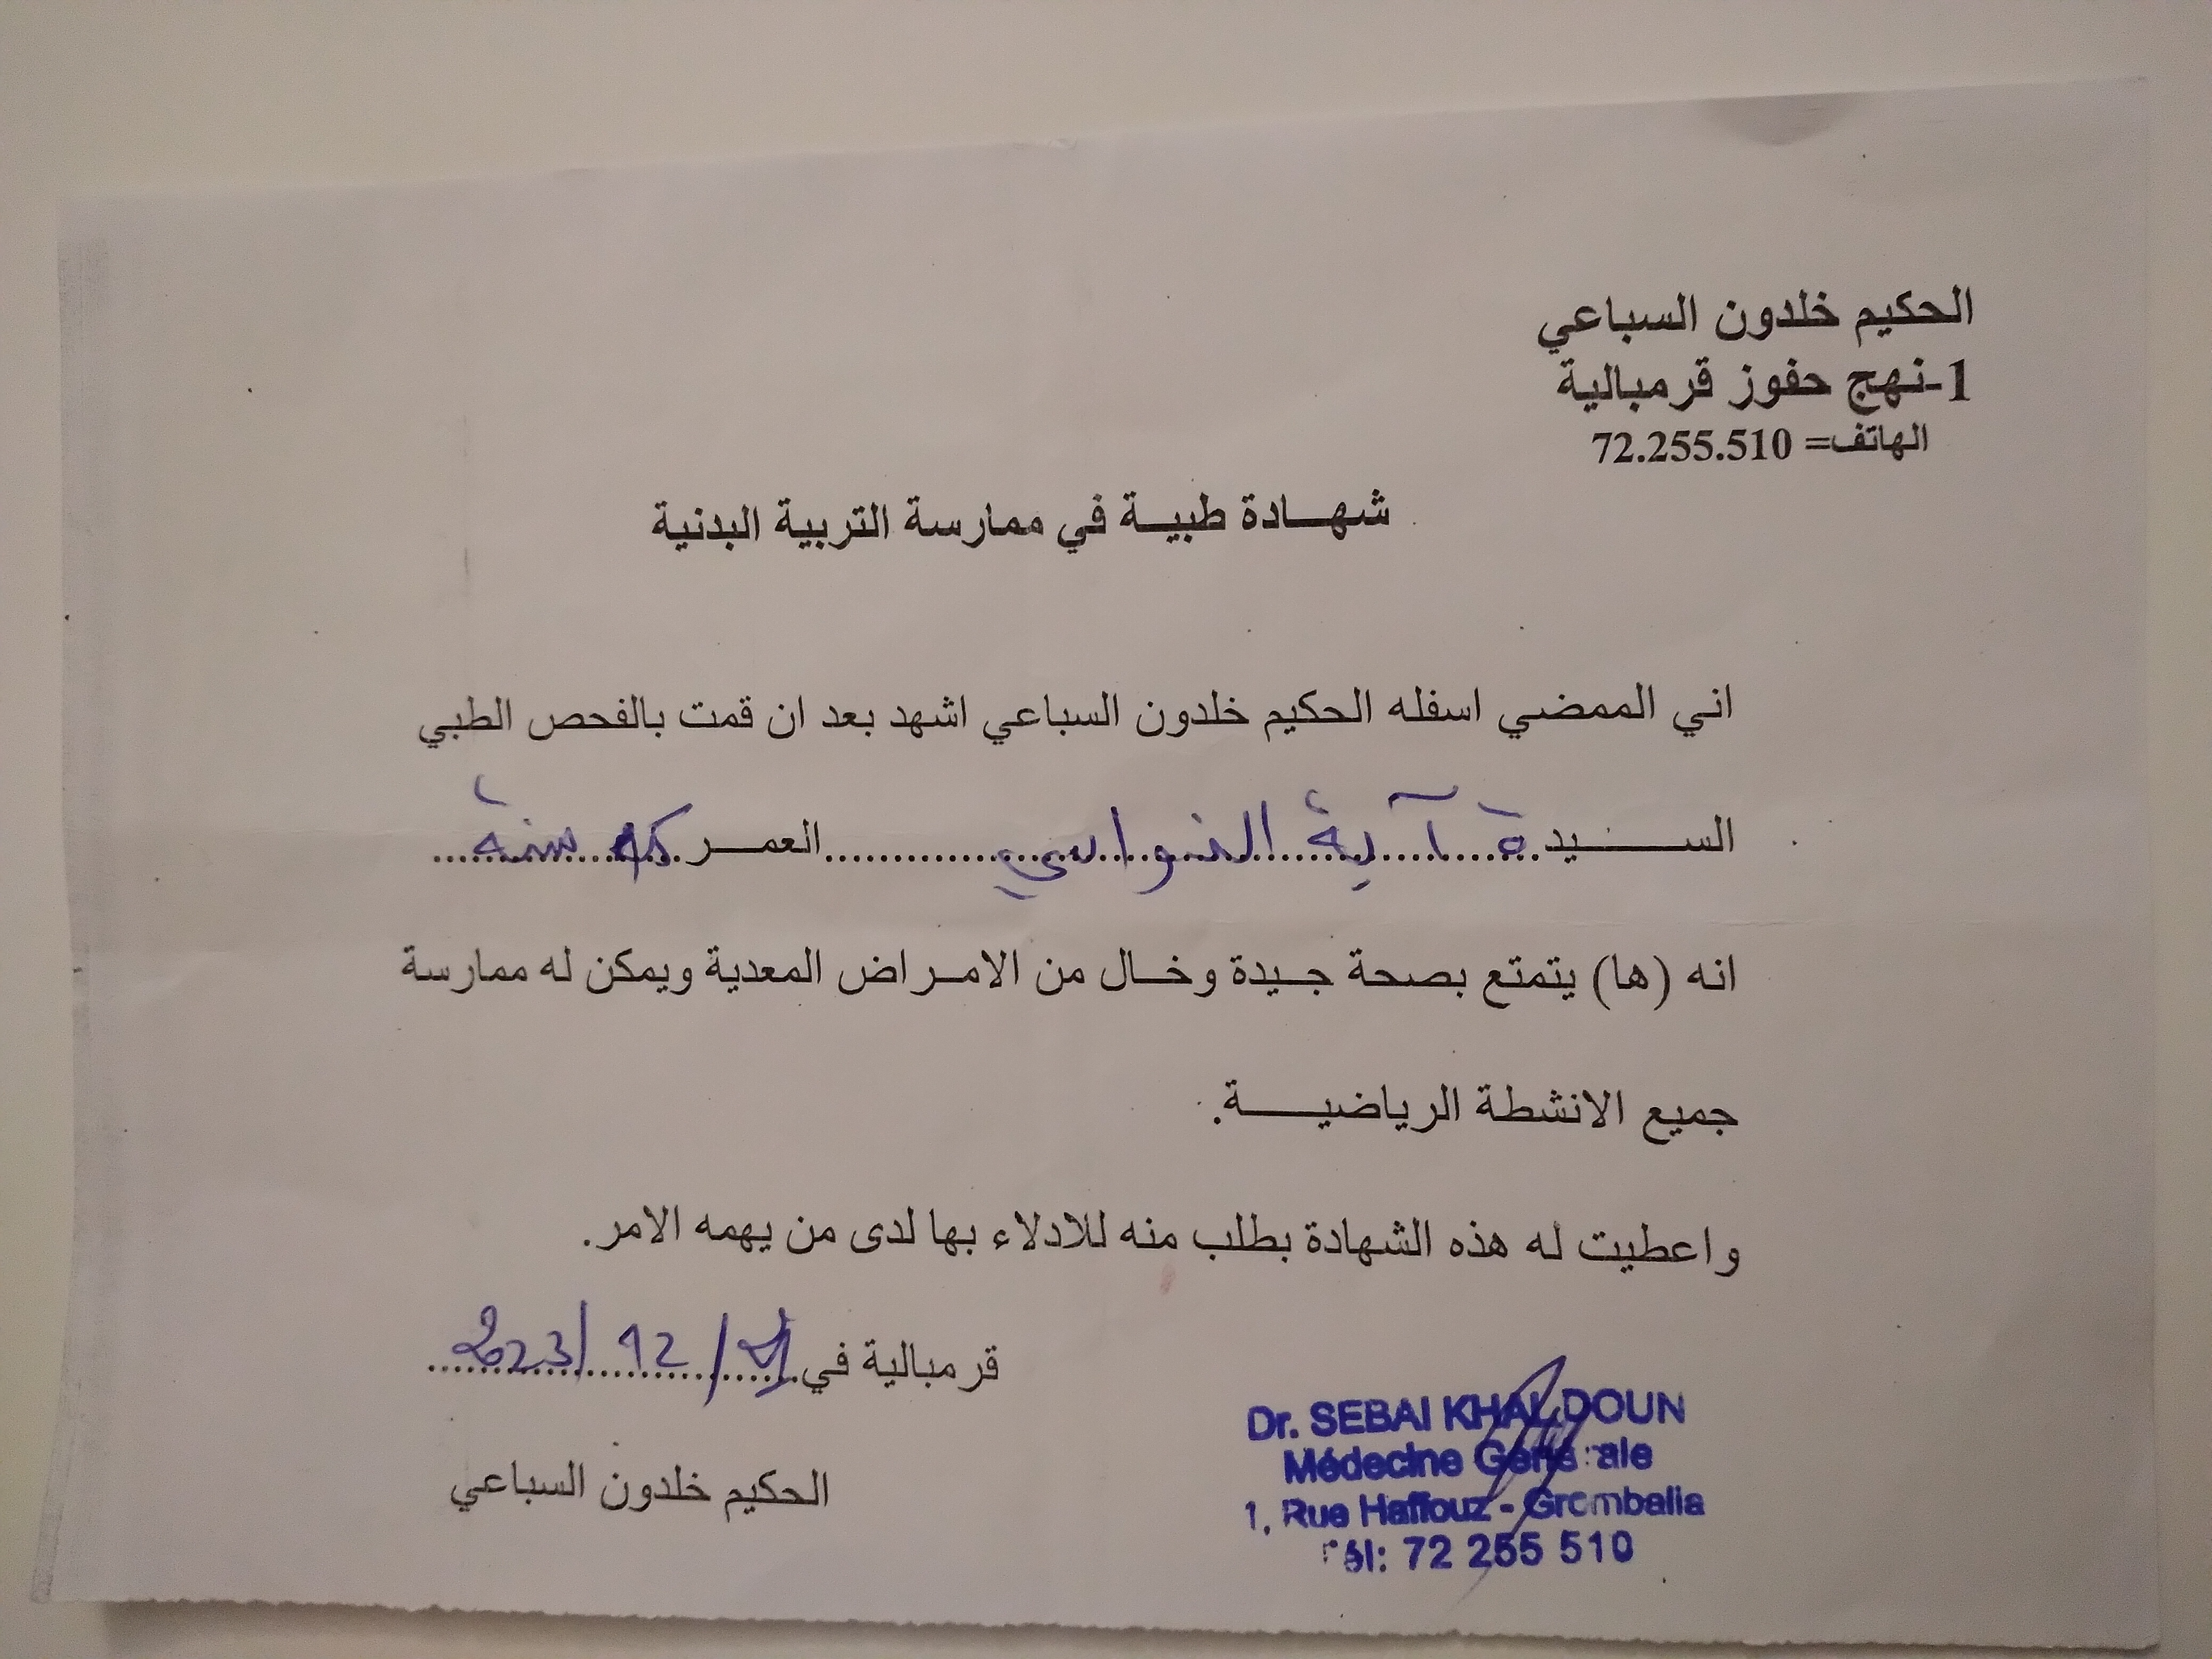 الحكيم خلدون السباعي
1-نهج حفوز قرمبالية
الهاتف= 72.255.510
شهـــادة طبيـــة في ممارسة التربية البدنية
اني الممضي اسفله الحكيم خلدون السباعي اشهد بعد ان قمت بالفحص الطبي
الســـــيدة آية النواسي العمـــر سنة
انه (ها) يتمتع بصحة جـيدة وخـــال من الامـراض المعدية ويمكن له ممارسة
جميع الانشطة الرياضيـــــة.
واعطيت له هذه الشهادة بطلب منه للادلاء بها لدى من يهمه الامر.
قرمبالية في /12/2023
الحكيم خلدون السباعي
Dr. SEBAI KHALDOUN
Médecine Générale
1, Rue Haffouz - Grombalia
Tél: 72 255 510